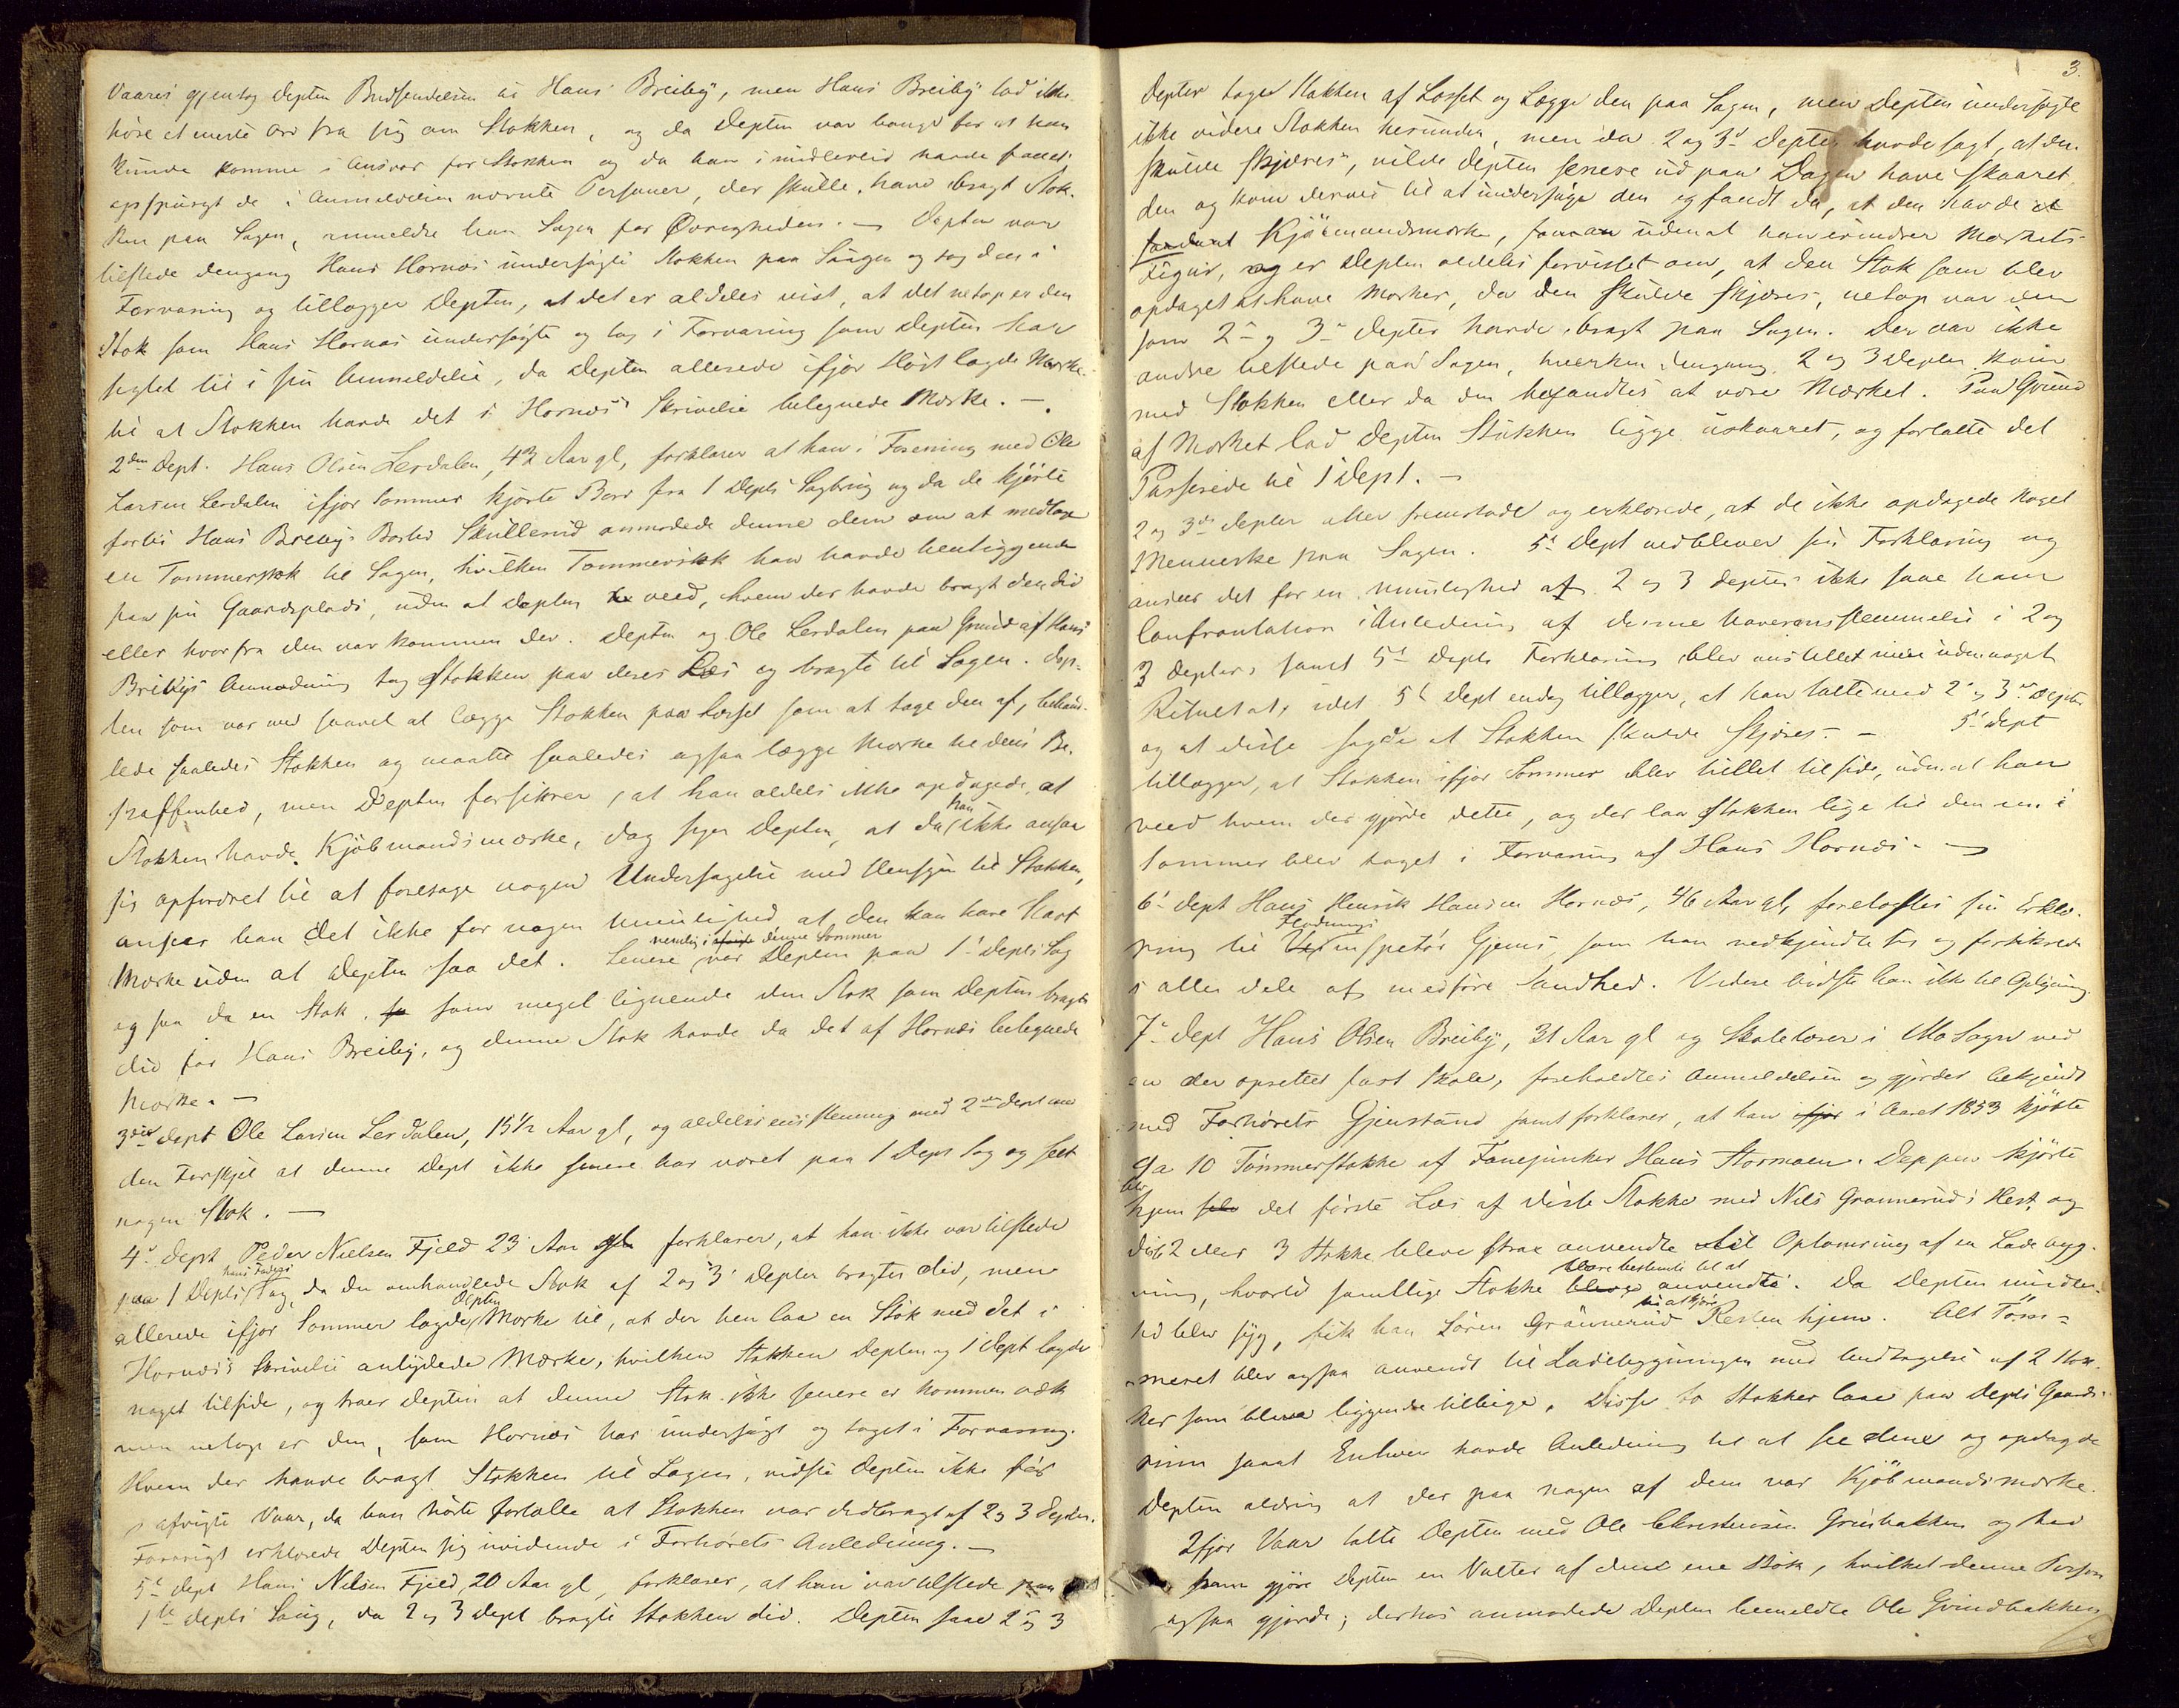 Vaares gjentog Depten Budsendelsen til Hans Breiby, men Hans Breiby lod ikke
höre et eneste Ord fra sig om Stokken, og da Depten var bange for at han
kunde komme i Ansvar for Stokken og da han imidlertid havde faaet
opspurgt de i Anmeldelsen nævnte Personer, der skulle have bragt Stok-
ken paa Sagen, anmeldte han Sagen for Øvrigheden. — Depten var
tilstede dengang Hans Hornæs undersøgte Stokken paa Saugen og tog den i
Forvaring og tillægger Depten, at det er aldeles vist, at det netop er den
Stok som Hans Hornæs undersøgte og tog i Forvaring som Depten har
sigtet til i sin Anmeldelse, da Depten allerede ifjor Høst lagde Mærke
til at Stokken havde det i Hornæs' Skrivelse betegnede Mærke. —
2den Dept. Hans Olsen Lerdalen, 43 Aar gl, forklarer at han i Forening med Ole
Larsen Lerdalen ifjor Sommer kjørte Bord fra 1 Depts Sagbrug og da de kjørte
forbi Hans Breibys Bosted Skullerud anmodede denne dem om at medtage
en Tømmerstok til Sagen, hvilken Tømmerstok han havde henliggende
paa sin Gaardsplads, uden at Depten veed, hvem der havde bragt den did
eller hvorfra den var kommen der. Depten og Ole Lerdalen paa Grund af Hans
Breibys Anmodning tog Stokken paa deres Læs og bragte til Sagen. Dep-
ten som var med saavel at lægge Stokken paa Læsset som at tage den af, behand-
lede saaledes Stokken og maatte saaledes ogsaa lægge Mærke til dens Be-
skaffenhed, men Depten forsikrer, at han aldeles ikke opdagede, at
Stokken havde Kjøbmandsmærke, dog siger Depten, at da han ikke ansaa
sig opfordret til at foretage nogen Undersøgelse med Hensyn til Stokken,
anseer han det ikke for nogen Umulighed, at den kan have havt
Mærke uden at Depten saa det. Senere nemlig i denne Sommer var Depten paa 1' Depts Sag
og saa da en Stok, som meget lignende den Stok som Depten bragte
did for Hans Breiby, og denne Stok havde da det af Hornæs betegnede
Mærke. —
3die Dept Ole Larsen Lerdalen, 15½ Aar gl, og aldeles eenstemmig med 2den Dept med
den Forskjel at denne Dept ikke senere har været paa 1 Depts Sag og seet
nogen Stok. —
4' Dept Peder Nielsen Fjeld 23 Aar gl forklarer, at han ikke var tilstede
paa 1 Depts hans Faders Sag, da den omhandlede Stok af 2 og 3' Depter bragtes did, men
allerede ifjor Sommer lagde Depten Mærke til, at der hen laa en Stok med det i
Hornæs's Skrivelse antydede Mærke, hvilken Stokken Depten og 1' Dept lagde
noget tilside, og troer Depten at denne Stok ikke senere er kommen væk
men netop er den, som Hornæs har undersøgt og taget i Forvaring.
Hvem der havde bragt Stokken til Sagen, vidste Depten ikke før
i afvigte Vaar, da han hørte fortælle at Stokken var didbragt af 2 og 3 Depter.
Forøvrigt erklærede Depten sig uvidende i Forhørets Anledning. —
5' Dept Hans Nilsen Fjeld, 20 Aar gl, forklarer, at han var tilstede paa
1te Depts Saug, da 2 og 3 Dept bragte Stokken did. Depten saae 2 og 3
3.
Depter tage Stokken af Læsset og Lægge den paa Sagen, men Depten undersøgte
ikke videre Stokken herunder, men da 2 og 3' Depter havde sagt, at den
skulde skjæres, vilde Depten senere ud paa Dagen have skaaret
den og kom derved til at undersøge den og fandt da, at den havde et
Kjöbmandsmærke, uden at han erindrer Mærkets
Figur, og er Depten aldeles forvisset om, at den Stok som blev
opdaget at have Mærker, da den skulde skjæres, netop var den
som 2' og 3' Depter havde bragt paa Sagen. Der var ikke
andre tilstede paa Sagen, hverken dengang 2 og 3 Depter kom
med Stokken eller da den befandtes at være Mærket. Paa Grund
af Mærket lod Depten Stokken ligge uskaaret, og fortalte det
Passerede til 1 Dept. —
2 og 3die Depter atter fremstode og erklærede, at de ikke opdagede noget
Menneske paa Sagen. 5' Dept vedblever sin Forklaring og
anseer det for en Umulighed at 2 og 3 Depter ikke saae ham
Confrontation i Anledning af denne Uoverensstemmelse i 2 og
3 Depters samt 5' Depts Forklaring blev anstillet men uden noget
Resultat, idet 5' Dept endog tillægger, at han talte med 2' og 3die Depter
og at disse sagde at Stokken skulde skjæres. — 5' Dept
tillægger, at Stokken ifjor Sommer blev trillet tilside, uden at han
veed hvem der gjorde dette, og der laa Stokken lige til den nu i
Sommer blev taget i Forvaring af Hans Hornæs. —
6' Dept Hans Henrik Hansen Hornæs, 46 Aar gl, forelæstes sin Erklæ-
ring til Flødnings Inspektör Gjems, som han vedkjendte sig og forsikrede
i alle Dele at medføre Sandhed. Videre vidste han ikke til Oplysning.
7' Dept Hans Olsen Breiby, 31 Aar gl og Skolelærer i Mo Sogn ved
en der oprettet fast Skole, foreholdtes Anmeldelsen og gjordes bekjendt
med Forhørets Gjenstand samt forklarer, at han i Aaret 1853 kjøbte
9 a 10 Tømmerstokke af Fanejunker Hans Stormoen. Depten kjørte
hjem det første Læs af disse Stokke med Nils Grønneruds Hest og
disse 2 eller 3 Stokke bleve strax anvendte til Optømring af en Ladebyg-
ning, hvortil samtlige Stokke vare bestemte til at anvendes. Da Depten imidler-
tid blev syg, fik han Søren Grønnerud til at kjøre Resten hjem. Alt Töm-
meret blev ogsaa anvendt til Ladebygningen med Undtagelse af 2 Stok-
ker som bleve liggende tilbage. Disse to Stokker laae paa Depts Gaards-
rum saaat Enhver havde Anledning til at see dem og opdagede
Depten aldrig at der paa nogen af dem var Kjöbmandsmærke.
Ifjor Vaar talte Depten med Ole Christensen Grindbakken og bad
ham gjøre Depten en Valter af den ene Stok, hvilket denne Person
ogsaa gjorde; derhos anmodede Depten bemeldte Ole Grindbakken